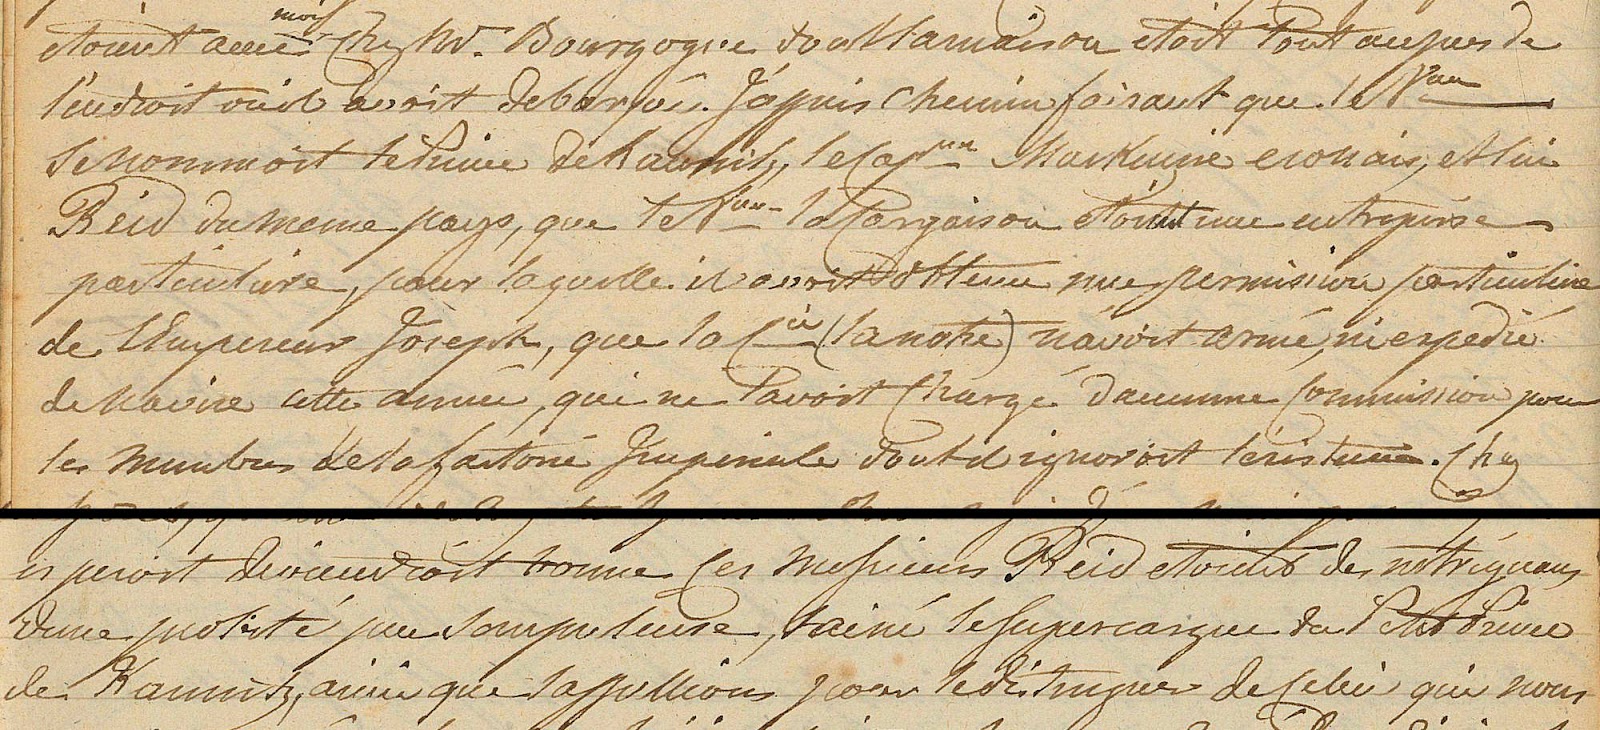 moi
étoient avec Chez Mr. Bourgogne dont la maison étoit tout auprès de
l'endroit où il avoit debarqué. J'appris chemin faisant que le Vau
se nommoit le Prince de Kaunitz, le Capne Mackuine ecossais, et lui
Reid du meme pays, que le Vau la Cargaison étoient une entreprise
particuliere, pour laquelle il avoit obtenu une permission particuliere
de l'Empereur Joseph, que la Cie (la notre) n'avoit armé, ni expedié
de Navire cette année, qui ne l'avoit Chargé d'aucunne Commission pour
les Membres de la factorie Imperiale dont il ignoroit l'existence. Chez
esperoit deviendroit bonne Ces Messieurs Reid etoient des intriguans
d'une probité peu scrupuleuse, l'ainé le Supercargue du Petit Prince
de Kaunitz, ainsi que l'appellions pour le distinguer de Celui qui nous